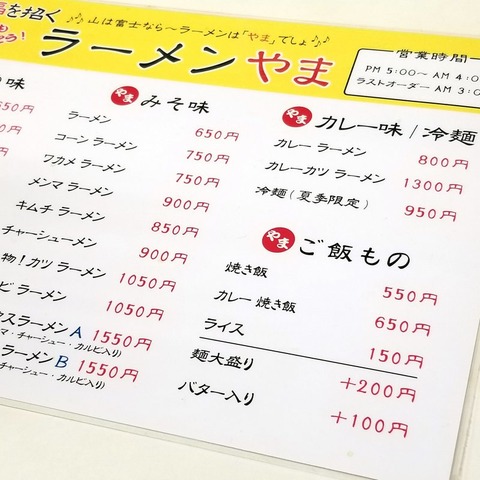 福を招く
♪♪山は富士なら〜ラーメンは「やま」でしょ♪♪
ラーメンやま
営業時間
PM 5:00〜 AM 4:0
ラストオーダー AM 3:0
味
650円
やま みそ味
ラーメン 650円
コーン ラーメン 750円
ワカメ ラーメン 750円
メンマ ラーメン 900円
キムチ ラーメン 850円
チャーシューメン 900円
物！カツ ラーメン 1050円
ビ ラーメン 1050円
スラーメン A 1550円
マ・チャーシュー・カルビ入り)
ラーメン B 1550円
チャーシュー・カルビ入り)
やま カレー味 / 冷麺
カレー ラーメン 800円
カレーカツ ラーメン 1300円
冷麺 (夏季限定) 950円
やま ご飯もの
焼き飯 550円
カレー 焼き飯 650円
ライス 150円
麺大盛り +200円
バター入り +100円